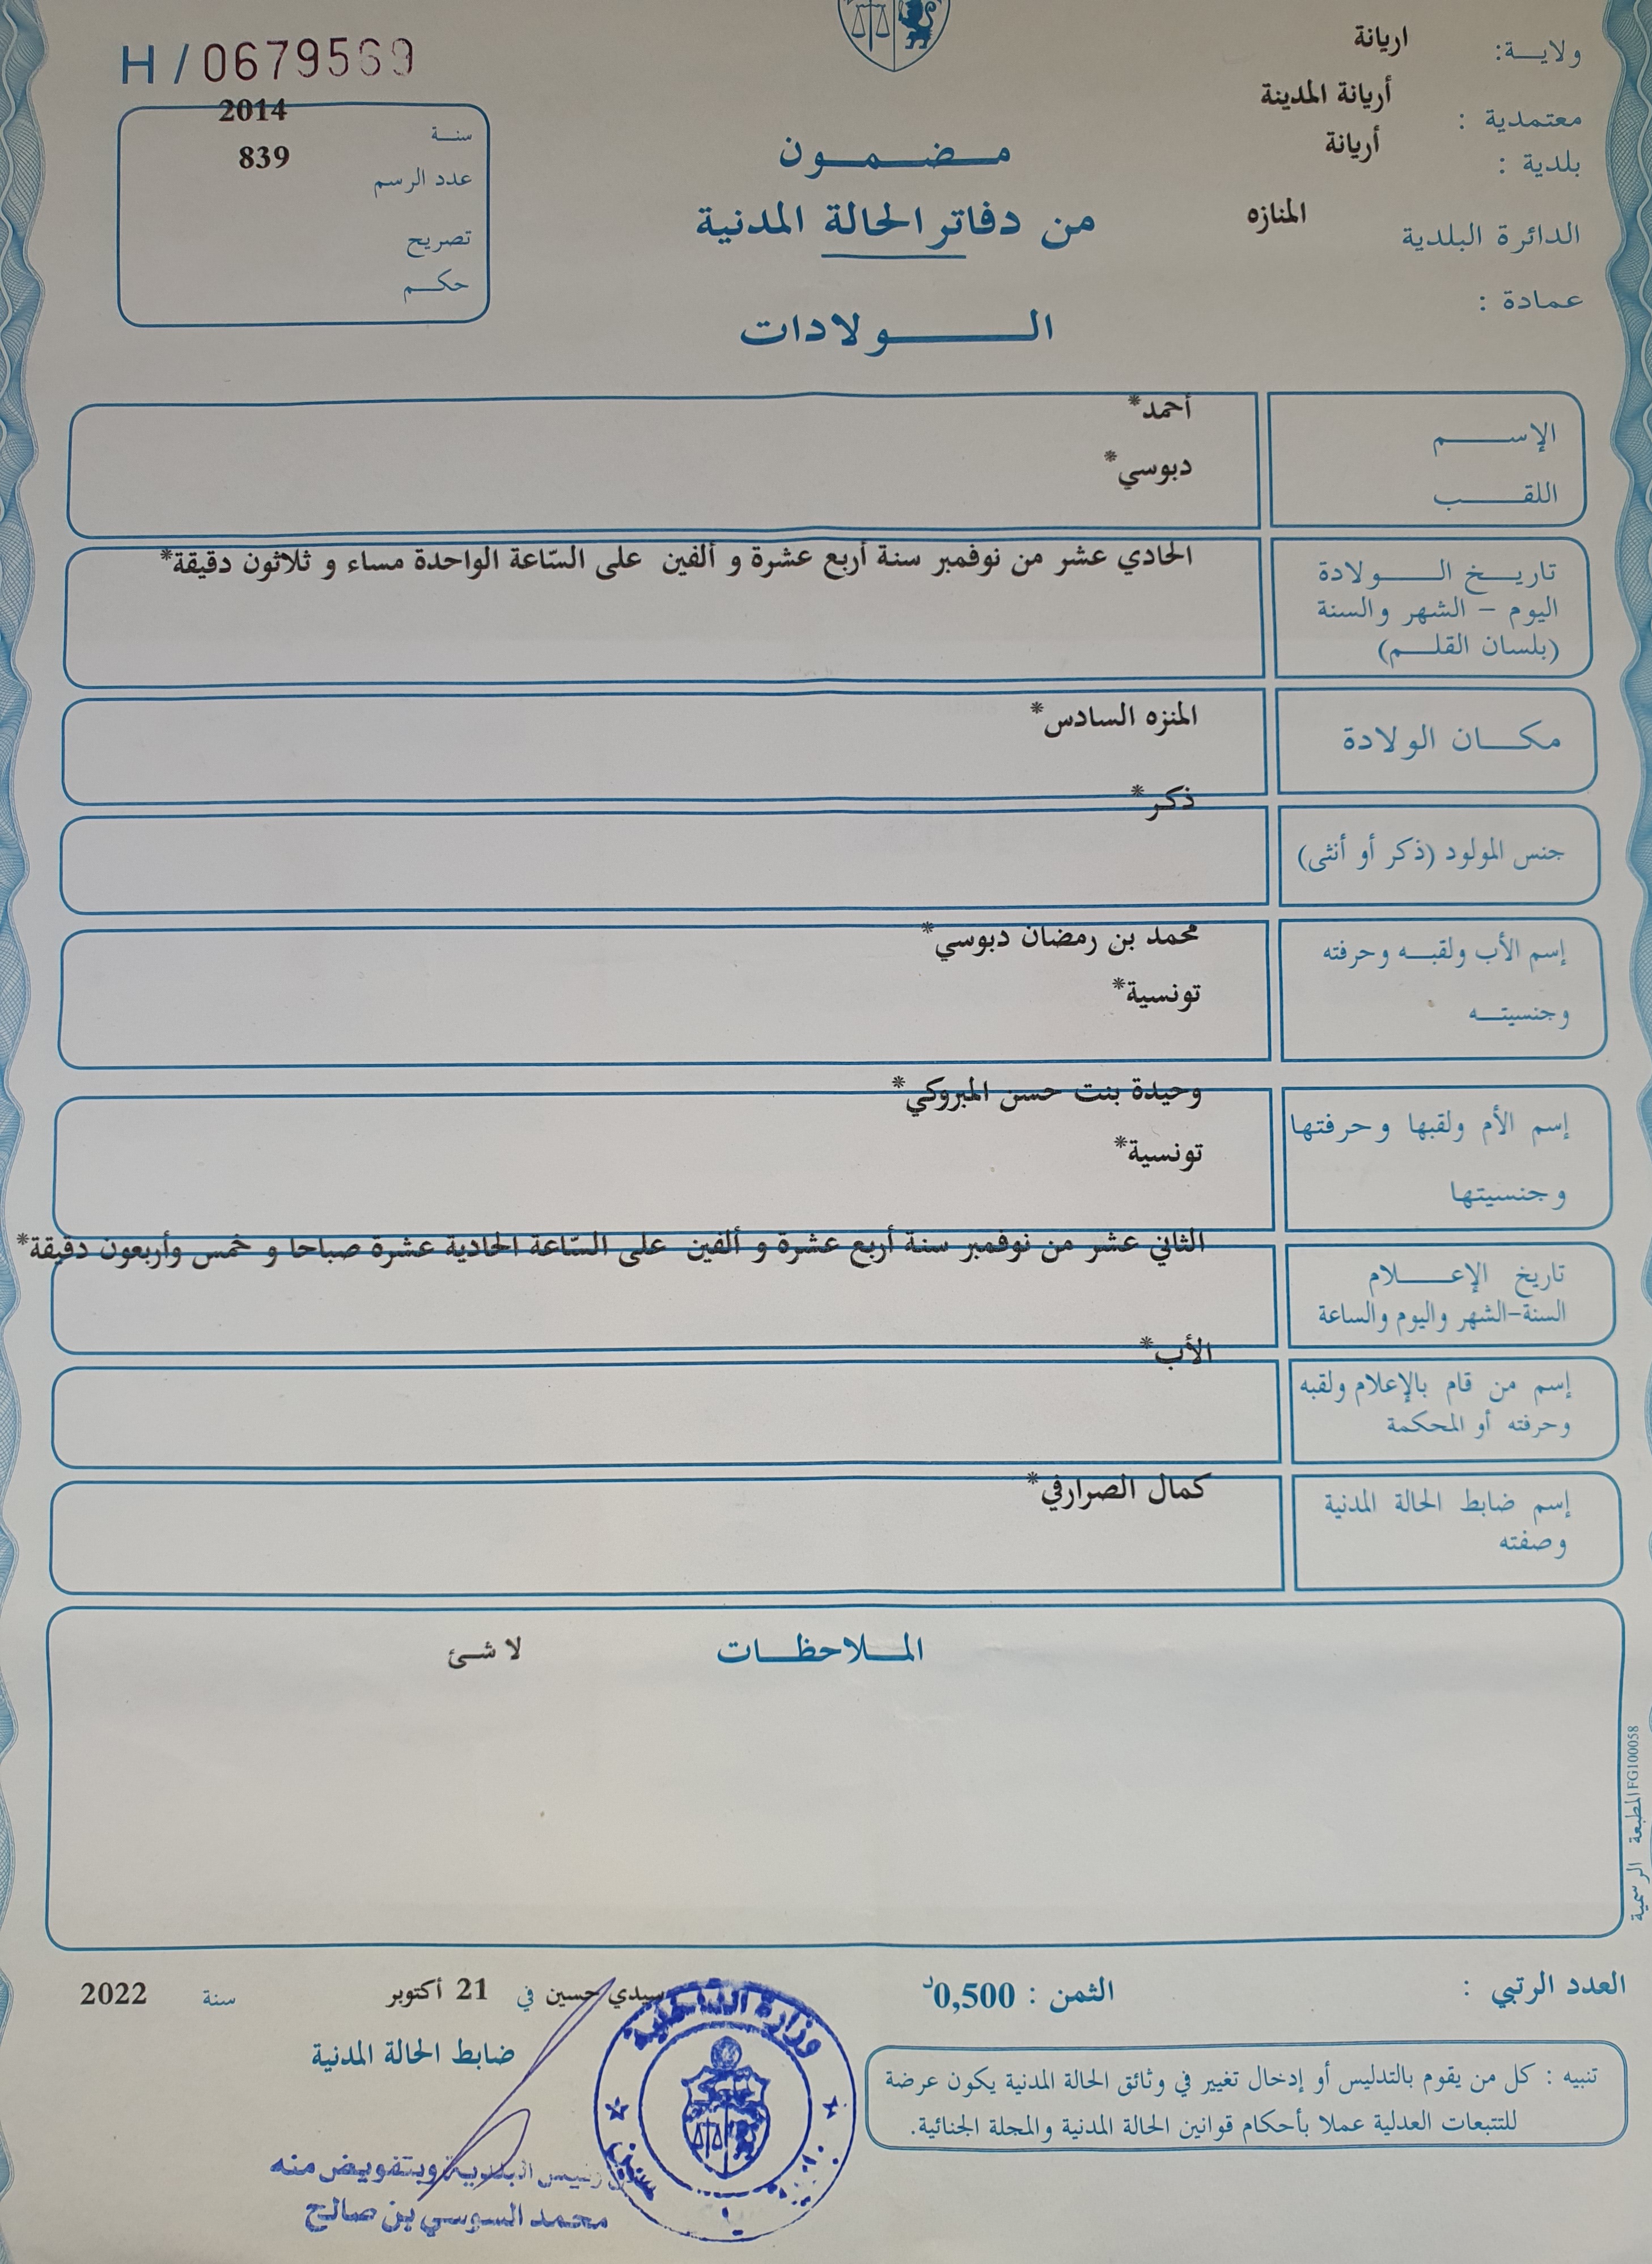 ولايـــة: اريانة
معتمدية : أريانة المدينة
بلدية : أريانة
الدائرة البلدية المنازه
عمادة :
H / 0679569
سنــة 2014
عدد الرسم 839
تصريح
حكــم
مــضــمــون
من دفاتر الحالة المدنية
الــــولادات
الإســــم أحمد*
اللقــــب دبوسي*
تاريــخ الــــولادة الحادي عشر من نوفمبر سنة أربع عشرة و ألفين على السّاعة الواحدة مساء و ثلاثون دقيقة*
اليوم – الشهر والسنة
(بلسان القلــم)
مكــان الولادة المنزه السادس*
جنس المولود (ذكر أو أنثى) ذكر*
إسم الأب ولقبــه وحرفته محمد بن رمضان دبوسي*
وجنسيتــه تونسية*
إسم الأم ولقبها وحرفتها وحيدة بنت حسن المبروكي*
وجنسيتها تونسية*
تاريخ الإعــــلام الثاني عشر من نوفمبر سنة أربع عشرة و ألفين على السّاعة الحادية عشرة صباحا و خمس وأربعون دقيقة*
السنة-الشهر واليوم والساعة
إسم من قام بالإعلام ولقبه الأب*
وحرفته أو المحكمة
إسم ضابط الحالة المدنية كمال الصرارفي*
وصفته
المــلاحظــات لا شئ
المطبعة الرسمية FG100058
العدد الرتبي :
الثمن : 0,500د
سيدي حسين في 21 أكتوبر سنة 2022
ضابط الحالة المدنية
تنبيه : كل من يقوم بالتدليس أو إدخال تغيير في وثائق الحالة المدنية يكون عرضة
للتتبعات العدلية عملا بأحكام قوانين الحالة المدنية والمجلة الجنائية.
وزارة الداخلية
رئيس البلدية وبتفويض منه
محمد السوسي بن صالح